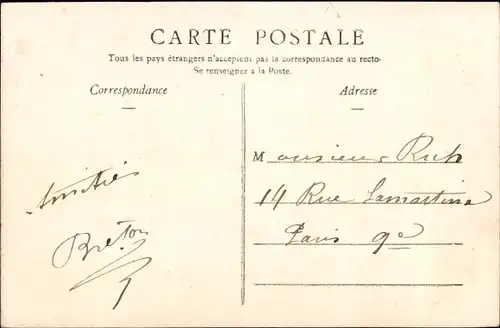 CARTE POSTALE
Tous les pays étrangers n'acceptent pas la correspondance au recto.
Se renseigner à la Poste.
Correspondance
Adresse
Monsieur Rich
14 Rue Lamartine
Paris 9e
Amitiés
Breton